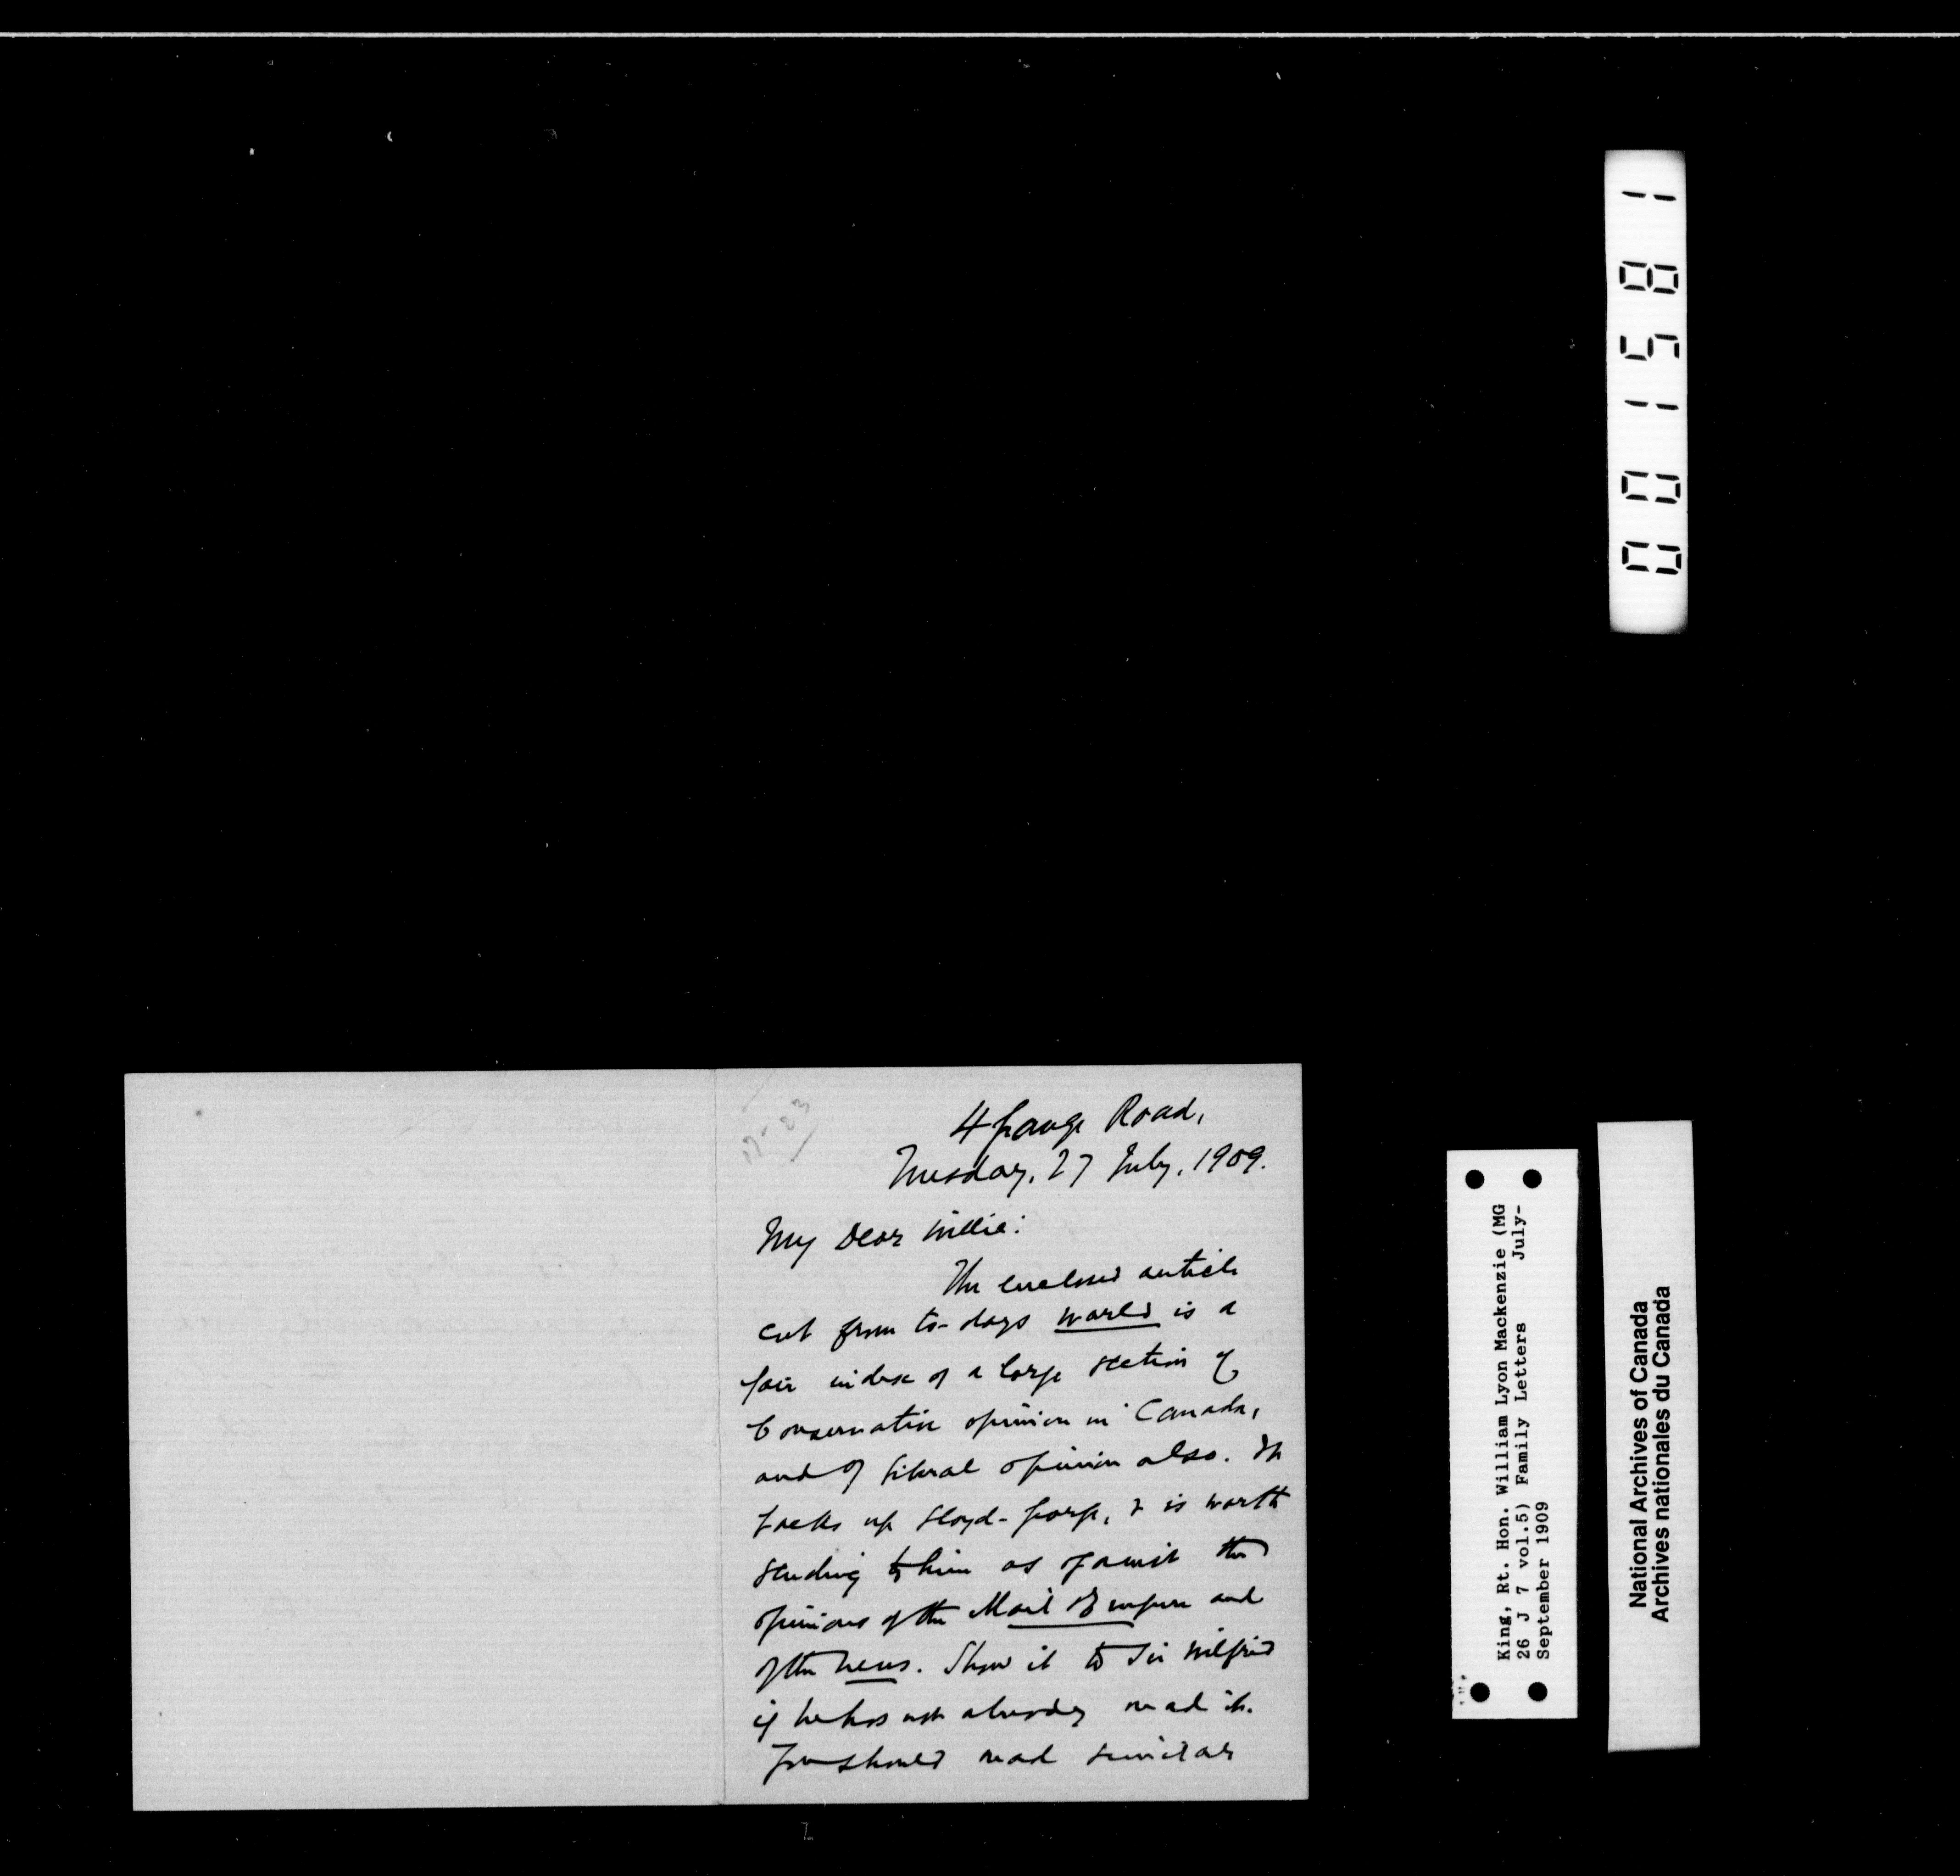 4 Grange Road,
Tuesday, 27 July, 1909.
My Dear Willie:
The enclosed article
cut from to-days World is a
fair index of a large section of
Conservative opinion in Canada,
and of Liberal opinion also. It
backs up Lloyd-George, & is worth
sending to him as against the
opinions of the Mail & Empire and
of the News. Show it to Sir Wilfrid
if he has not already read it.
You should read similar
001581
King, Rt. Hon. William Lyon Mackenzie (MG
26 J 7 vol.5) Family Letters July-
September 1909
National Archives of Canada
Archives nationales du Canada